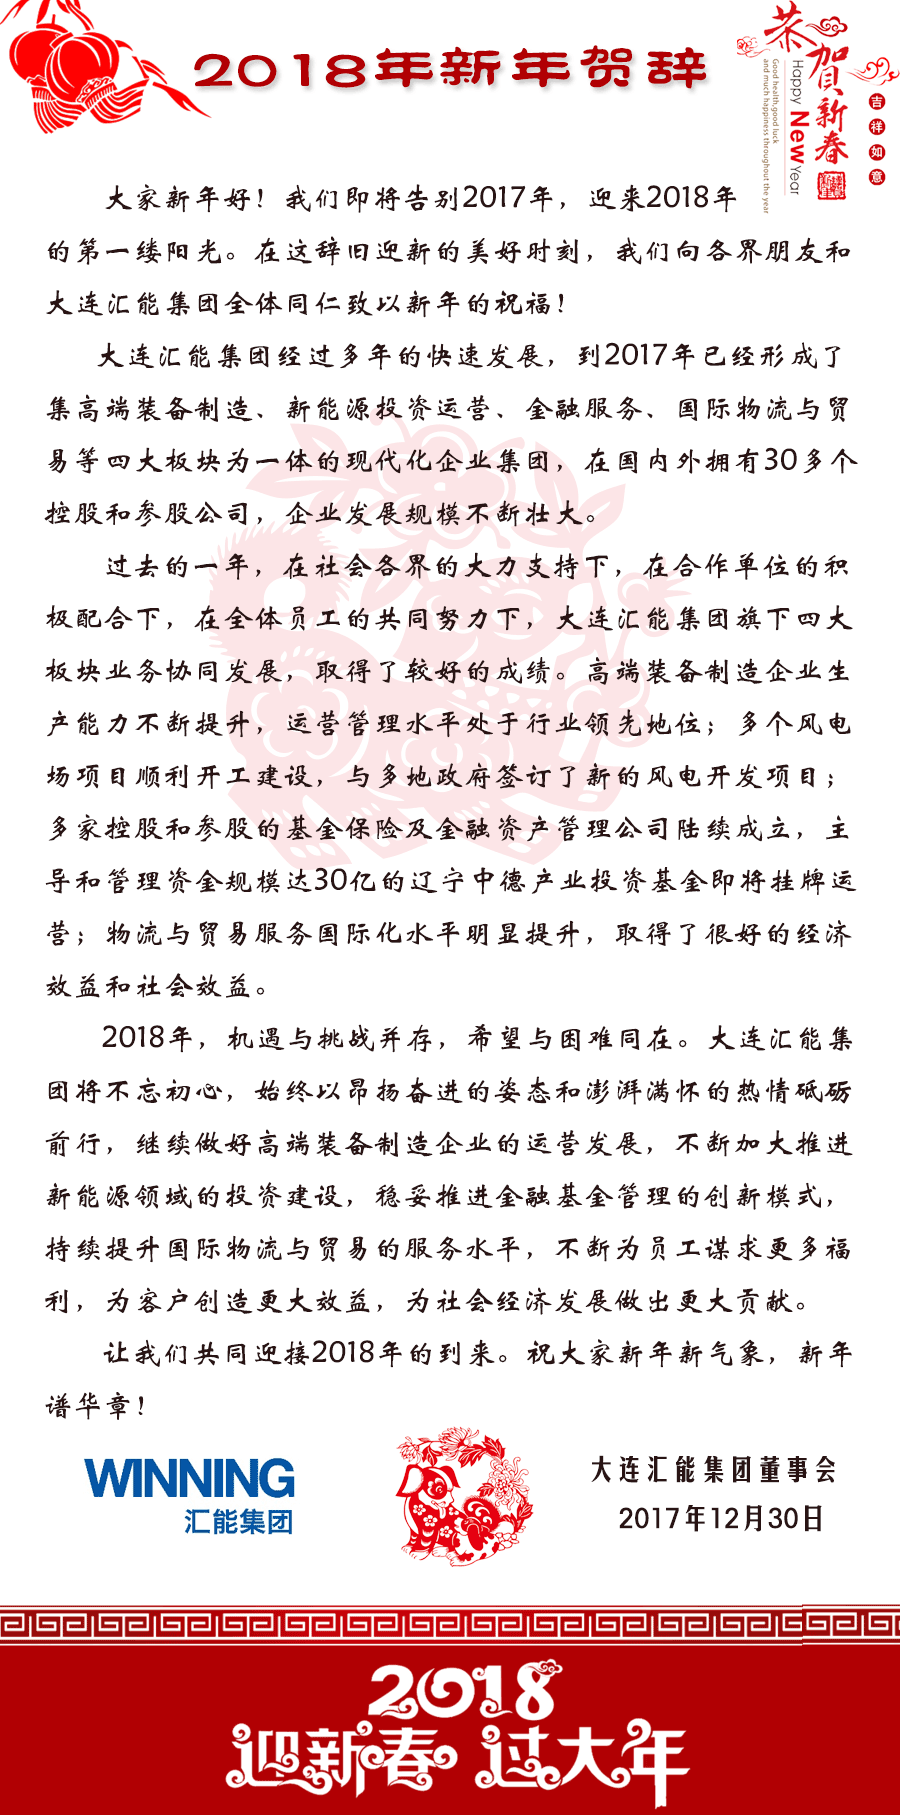 2018年新年贺辞
恭贺新春
Happy New Year
Good health,good luck
and much happiness throughout the year
吉祥如意
大家新年好！我们即将告别2017年，迎来2018年
的第一缕阳光。在这辞旧迎新的美好时刻，我们向各界朋友和
大连汇能集团全体同仁致以新年的祝福！
大连汇能集团经过多年的快速发展，到2017年已经形成了
集高端装备制造、新能源投资运营、金融服务、国际物流与贸
易等四大板块为一体的现代化企业集团，在国内外拥有30多个
控股和参股公司，企业发展规模不断壮大。
过去的一年，在社会各界的大力支持下，在合作单位的积
极配合下，在全体员工的共同努力下，大连汇能集团旗下四大
板块业务协同发展，取得了较好的成绩。高端装备制造企业生
产能力不断提升，运营管理水平处于行业领先地位；多个风电
场项目顺利开工建设，与多地政府签订了新的风电开发项目；
多家控股和参股的基金保险及金融资产管理公司陆续成立，主
导和管理资金规模达30亿的辽宁中德产业投资基金即将挂牌运
营；物流与贸易服务国际化水平明显提升，取得了很好的经济
效益和社会效益。
2018年，机遇与挑战并存，希望与困难同在。大连汇能集
团将不忘初心，始终以昂扬奋进的姿态和澎湃满怀的热情砥砺
前行，继续做好高端装备制造企业的运营发展，不断加大推进
新能源领域的投资建设，稳妥推进金融基金管理的创新模式，
持续提升国际物流与贸易的服务水平，不断为员工谋求更多福
利，为客户创造更大效益，为社会经济发展做出更大贡献。
让我们共同迎接2018年的到来。祝大家新年新气象，新年
谱华章！
WINNING
汇能集团
大连汇能集团董事会
2017年12月30日
2018
迎新春 过大年